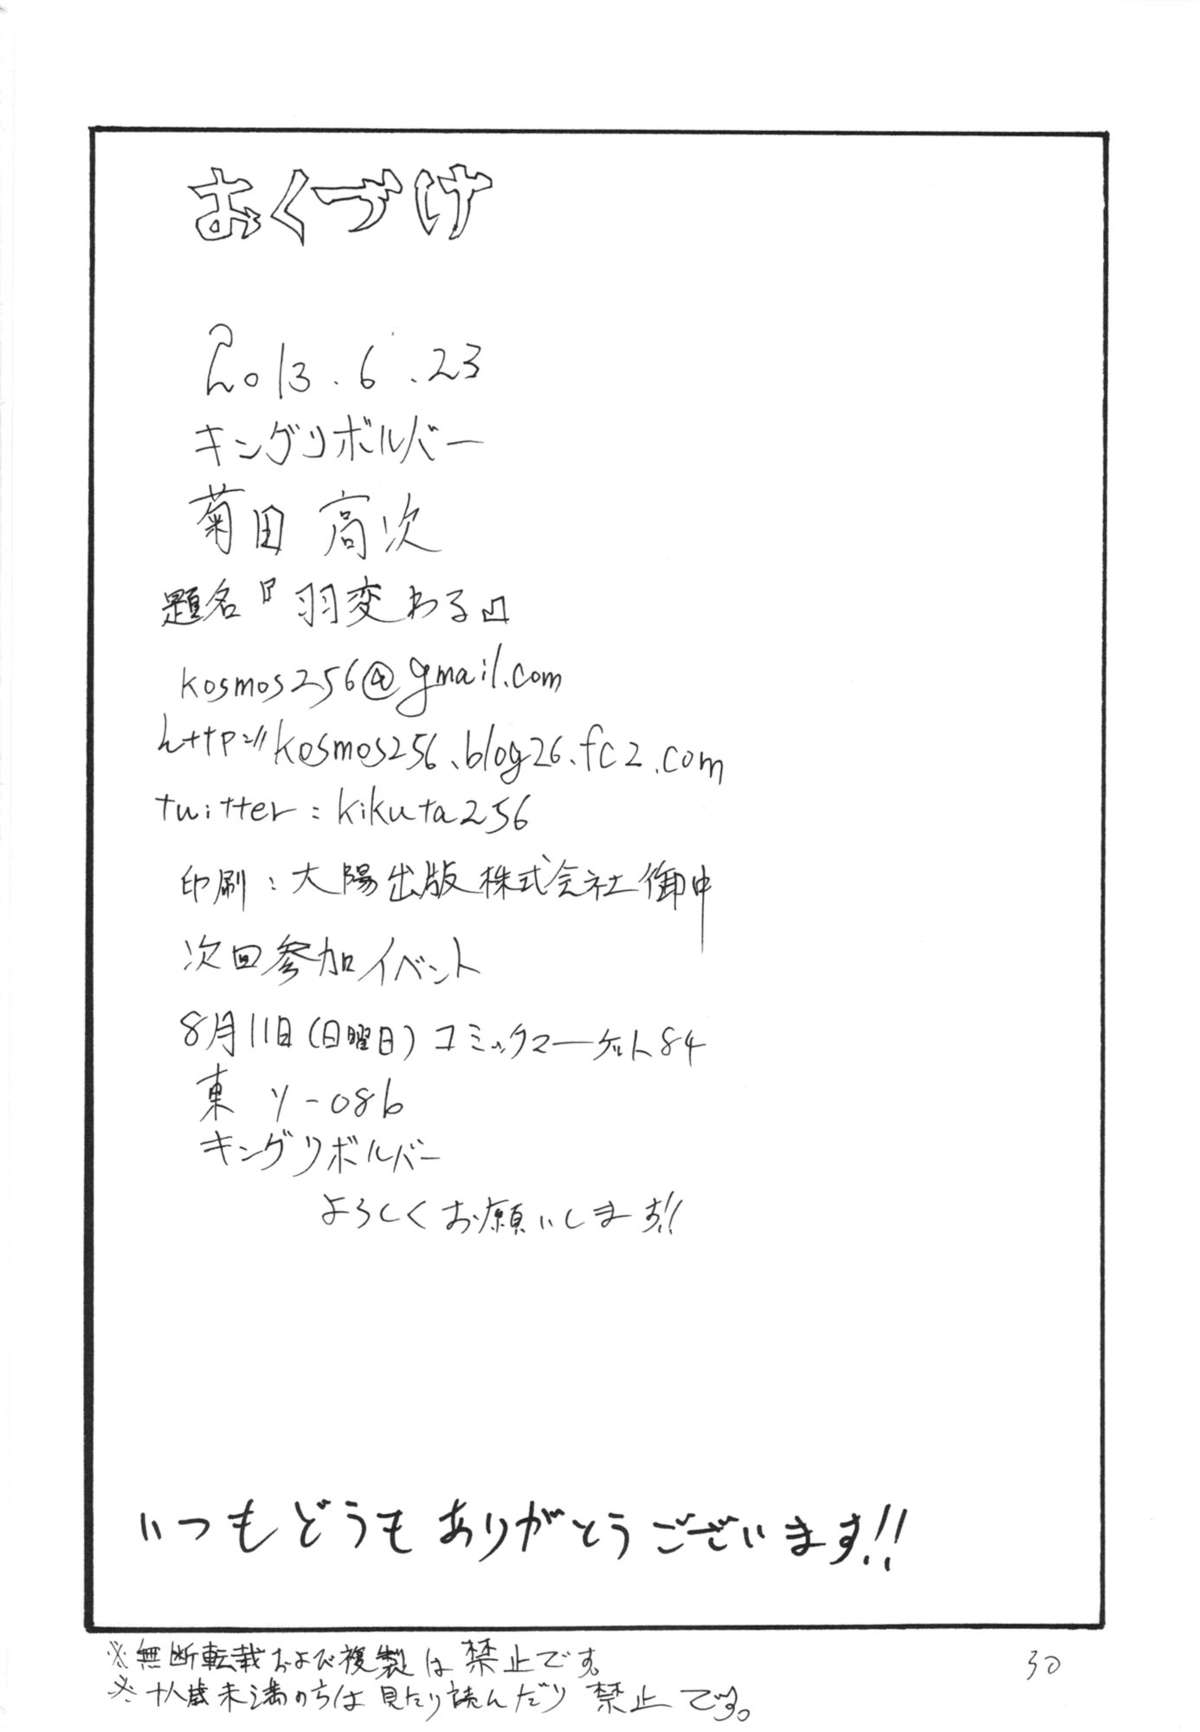 おくづけ
2013.6.23
キングリボルバー
菊田 高次
題名『羽変わる』
kosmos256@gmail.com
http://kosmos256.blog26.fc2.com
twitter:kikuta256
印刷:大陽出版株式会社御中
次回参加イベント
8月11日(日曜日)コミックマーケット84
東 ソ-08b
キングリボルバー
よろしくお願いします!!
いつもどうもありがとうございます!!
※無断転載および複製は禁止です。
※十八歳未満のちは見たり読んだり禁止です。
30